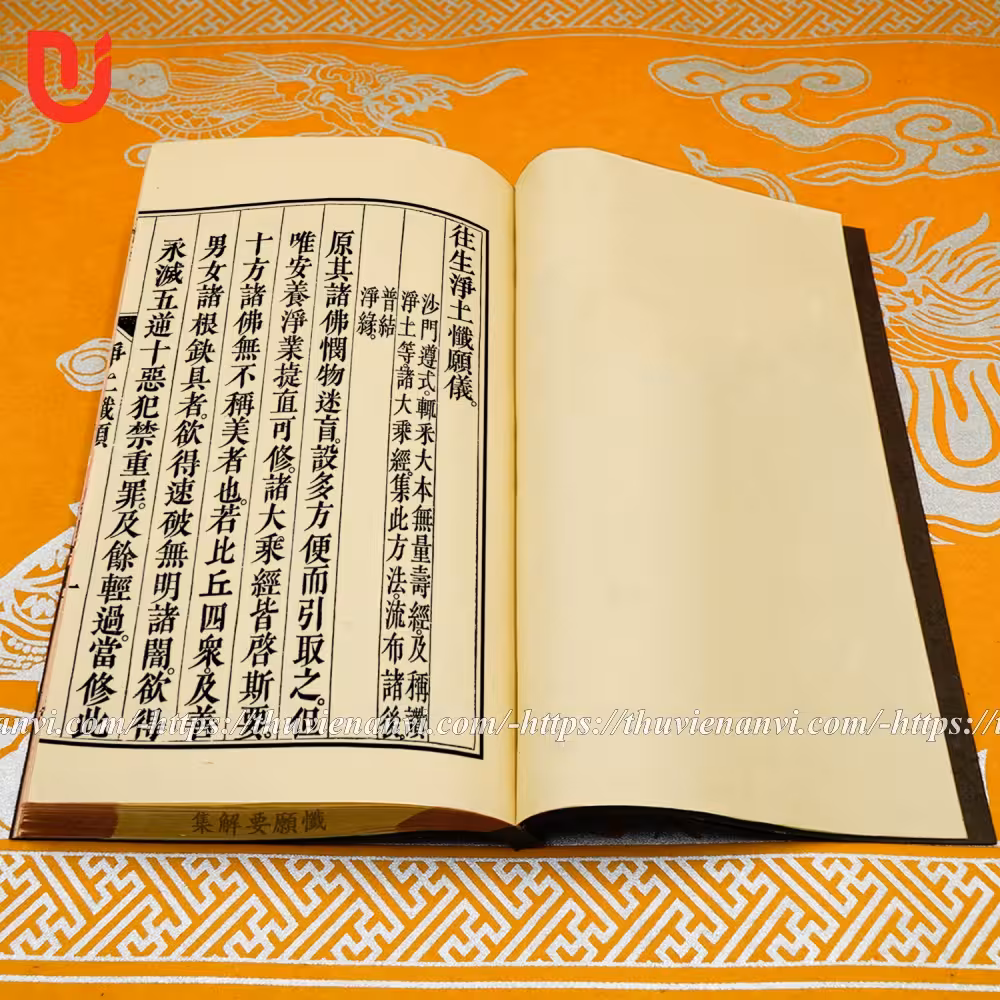 往生淨土懺願儀。
沙門遵式。輒采大本無量壽經。及稱讚
淨土等諸大乘經。集此方法。流布諸後。
普結
淨緣。
原其諸佛憫物迷盲。設多方便而引取之。但
唯安養淨業捷直可修。諸大乘經皆啓斯要。
十方諸佛無不稱美者也。若比丘四衆。及善
男女諸根缺具者。欲得速破無明諸闇。欲得
永滅五逆十惡犯禁重罪。及餘輕過。當修此
淨土懺願
一
懺願要解集
anvi.com/-https://thuvienanvi.com/-https://thuvienanvi.com/-https://t